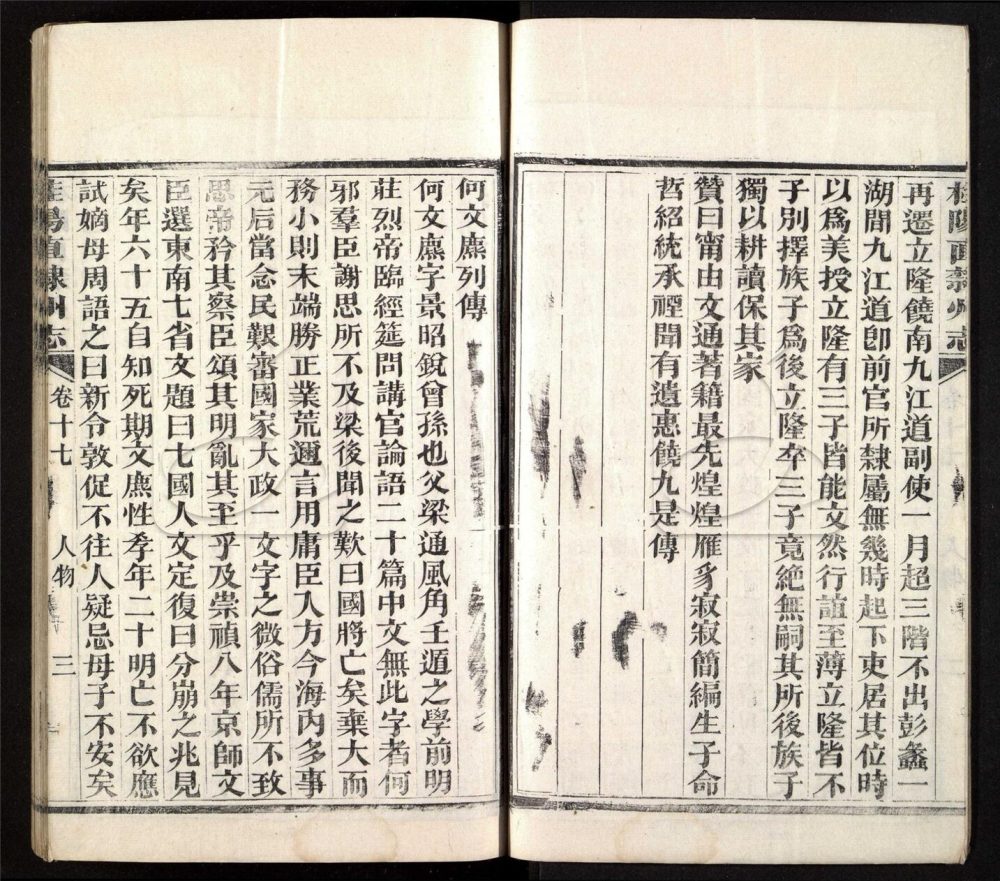 桂陽直隸州志
再遷立隆饒南九江道副使一月超三階不出彭蠡一
湖間九江道卽前官所隸屬無幾時起下吏居其位時
以爲美授立隆有三子皆能文然行誼至薄立隆皆不
子別擇族子爲後立隆卒三子竟絶無嗣其所後族子
獨以耕讀保其家
贊曰甯由文通著籍最先煌煌雁豸寂寂簡編生子命
哲紹統承禋聞有遺惠饒九是傳
何文廌列傳
何文廌字景昭銳曾孫也父梁通風角壬遁之學前明
莊烈帝臨經筵問講官論語二十篇中文無此字者何
邪羣臣謝思所不及梁後聞之歎曰國將亡矣棄大而
務小則末端勝正業荒邇言用庸臣入方今海內多事
元后當念民艱審國家大政一文字之微俗儒所不致
思帝矜其察臣頌其明亂其至乎及崇禎八年京師文
臣選東南七省文題曰七國人文定復曰分崩之兆見
矣年六十五自知死期文廌性孝年二十明亡不欲應
試嫡母周語之曰新令敦促不往人疑忌母子不安矣
桂陽直隸州志 卷十七 人物 三